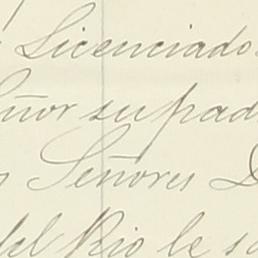 Licenciado
eñor su pad
Señores D
del Rio le s